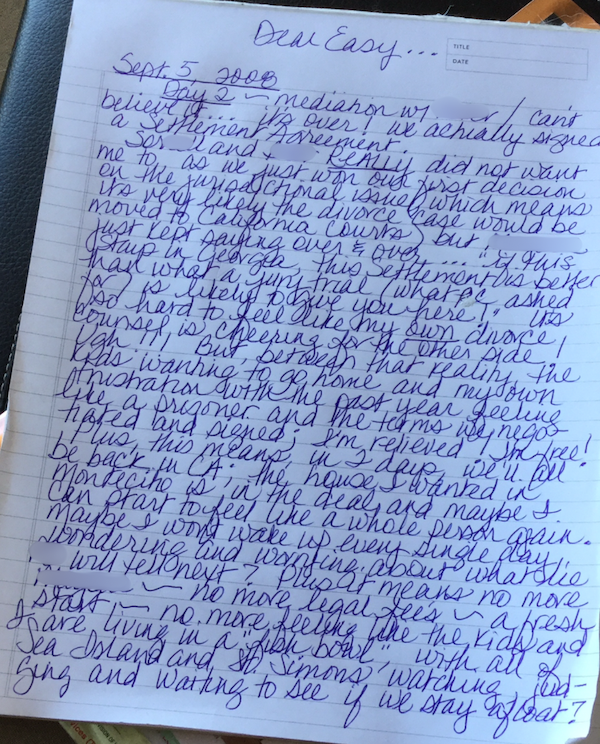 Dear Easy...
TITLE
DATE
Sept. 5, 2008
Day 2 ~ mediation w/ I can't
believe... it's over! We actually signed
a Settlement Agreement.
and REALLY did not want
me to, as we just won our first decision
on the jurisdictional issue (which means
it's very likely the divorce case would be
moved to California courts) but
just kept saying over & over... "if this
stays in Georgia, this settlement is better
than what a jury trial (what PC asked
for) is likely to give you here!" It's
so hard to feel like my own divorce
counsel is cheering for the other side!
Ugh!!! But, between that reality, the
kids wanting to go home and my own
frustration with the past year feeling
like a prisoner and the terms we nego-
tiated and signed, I'm relieved! I'm free!
Plus, this means, in 2 days, we'll all
be back in CA; the house I wanted in
Montecito is in the deal and maybe I
can start to feel like a whole person again.
Maybe I won't wake up every single day
wondering and worrying about what lie
will tell next? Plus it means no more
~ no more legal fees ~ a fresh
start ~ no more feeling like the kids and
I are living in a "fish bowl", with all of
Sea Island and St. Simons watching, jud-
ging and waiting to see if we stay afloat?